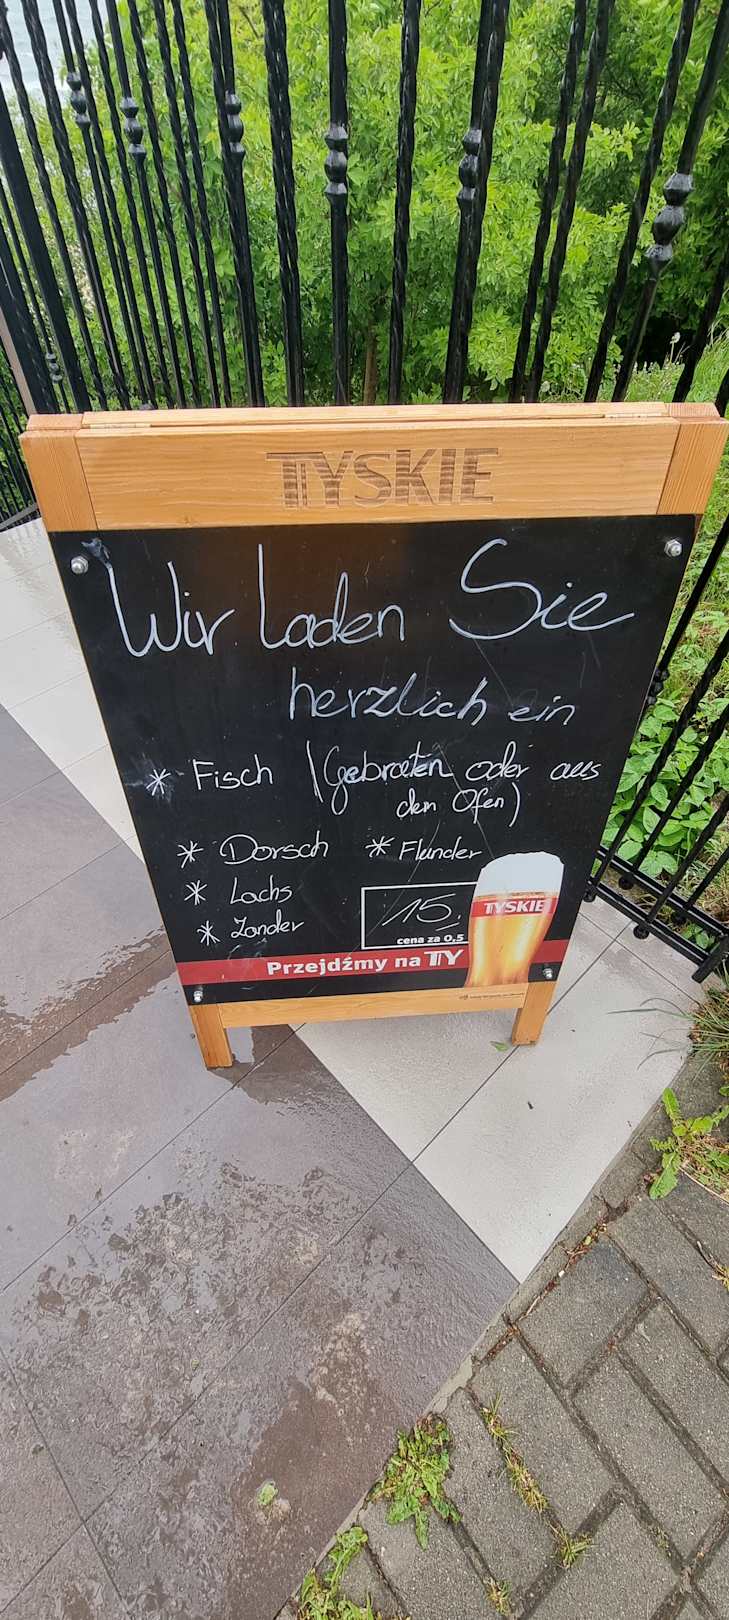 TYSKIE
Wir laden Sie
herzlich ein
* Fisch (Gebraten oder aus
dem Ofen)
* Dorsch * Flunder
* Lachs
* Zander
15,
cena za 0,5
TYSKIE
Przejdźmy na TY